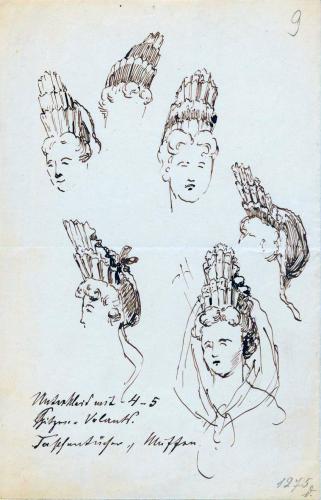 9
Unterkleid mit 4-5
Spitzen-Volants.
Taschentücher, Muffen
1275